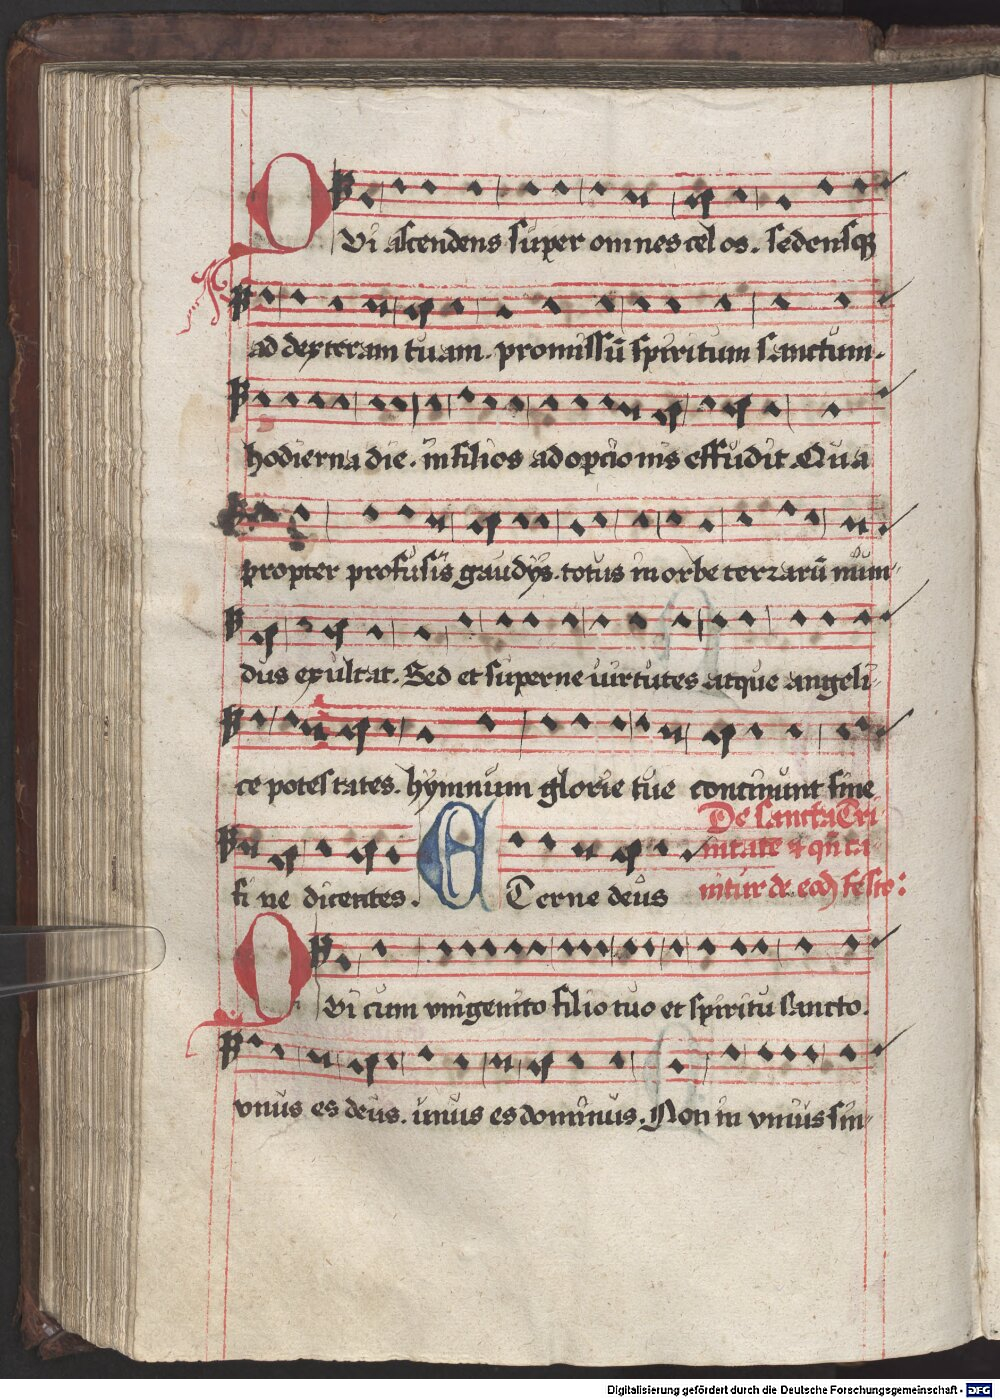 QUi ascendens super omnes celos. sedensqꝫ
ad dexteram tuam. promissū spiritum sanctum.
hodierna die. in filios adopcionis effudit. Qua
propter profusis gaudijs. totus in orbe terrarū mun-
dus exultat. Sed et superne uirtutes atque angeli-
ce potestates. hymnum glorie tue continunt sine
fine dicentes. ETerne deus
De sancta Tri
nitate et qñ ca
nitur de eodem festo:
QUi cum vnigenito filio tuo et spiritu sancto.
vnus es deus. unus es dominus. Non in vnius sin-
Digitalisierung gefördert durch die Deutsche Forschungsgemeinschaft - DFG